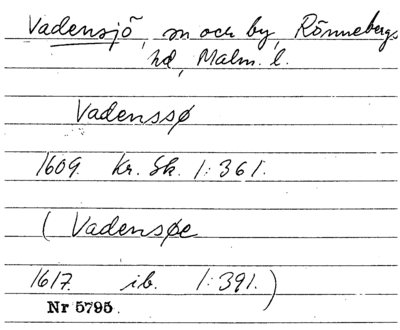 Vadensjö, sn och by, Rönnebergs
hd, Malm. l.
Vadenssø
1609. Kr. Sk. 1:361.
( Vadensøe
1617. ib. 1:391.)
Nr 5795.